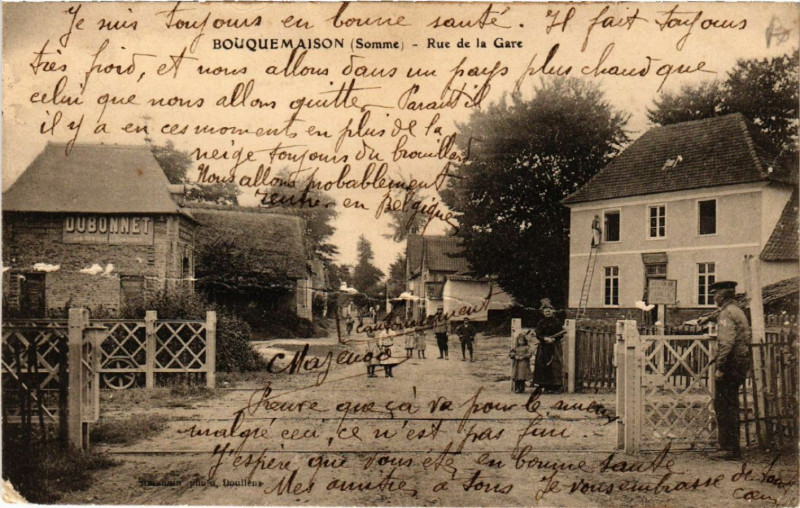 Je suis toujours en bonne santé. Il fait toujours
BOUQUEMAISON (Somme) - Rue de la Gare
très froid, et nous allons dans un pays plus chaud que
celui que nous allons quitter. Parait il
il y a en ces moments en plus de la
neige toujours du brouillard
Nous allons probablement
rentrer en Belgique
DUBONNET
cantonnement
Majeur
Preuve que çà va pour le mieux
malgré ceci, ce n'est pas fini.
J'espère que vous êtes en bonne santé
photo, Doullens
Mes amitiés à tous Je vous embrasse de tout
cœur